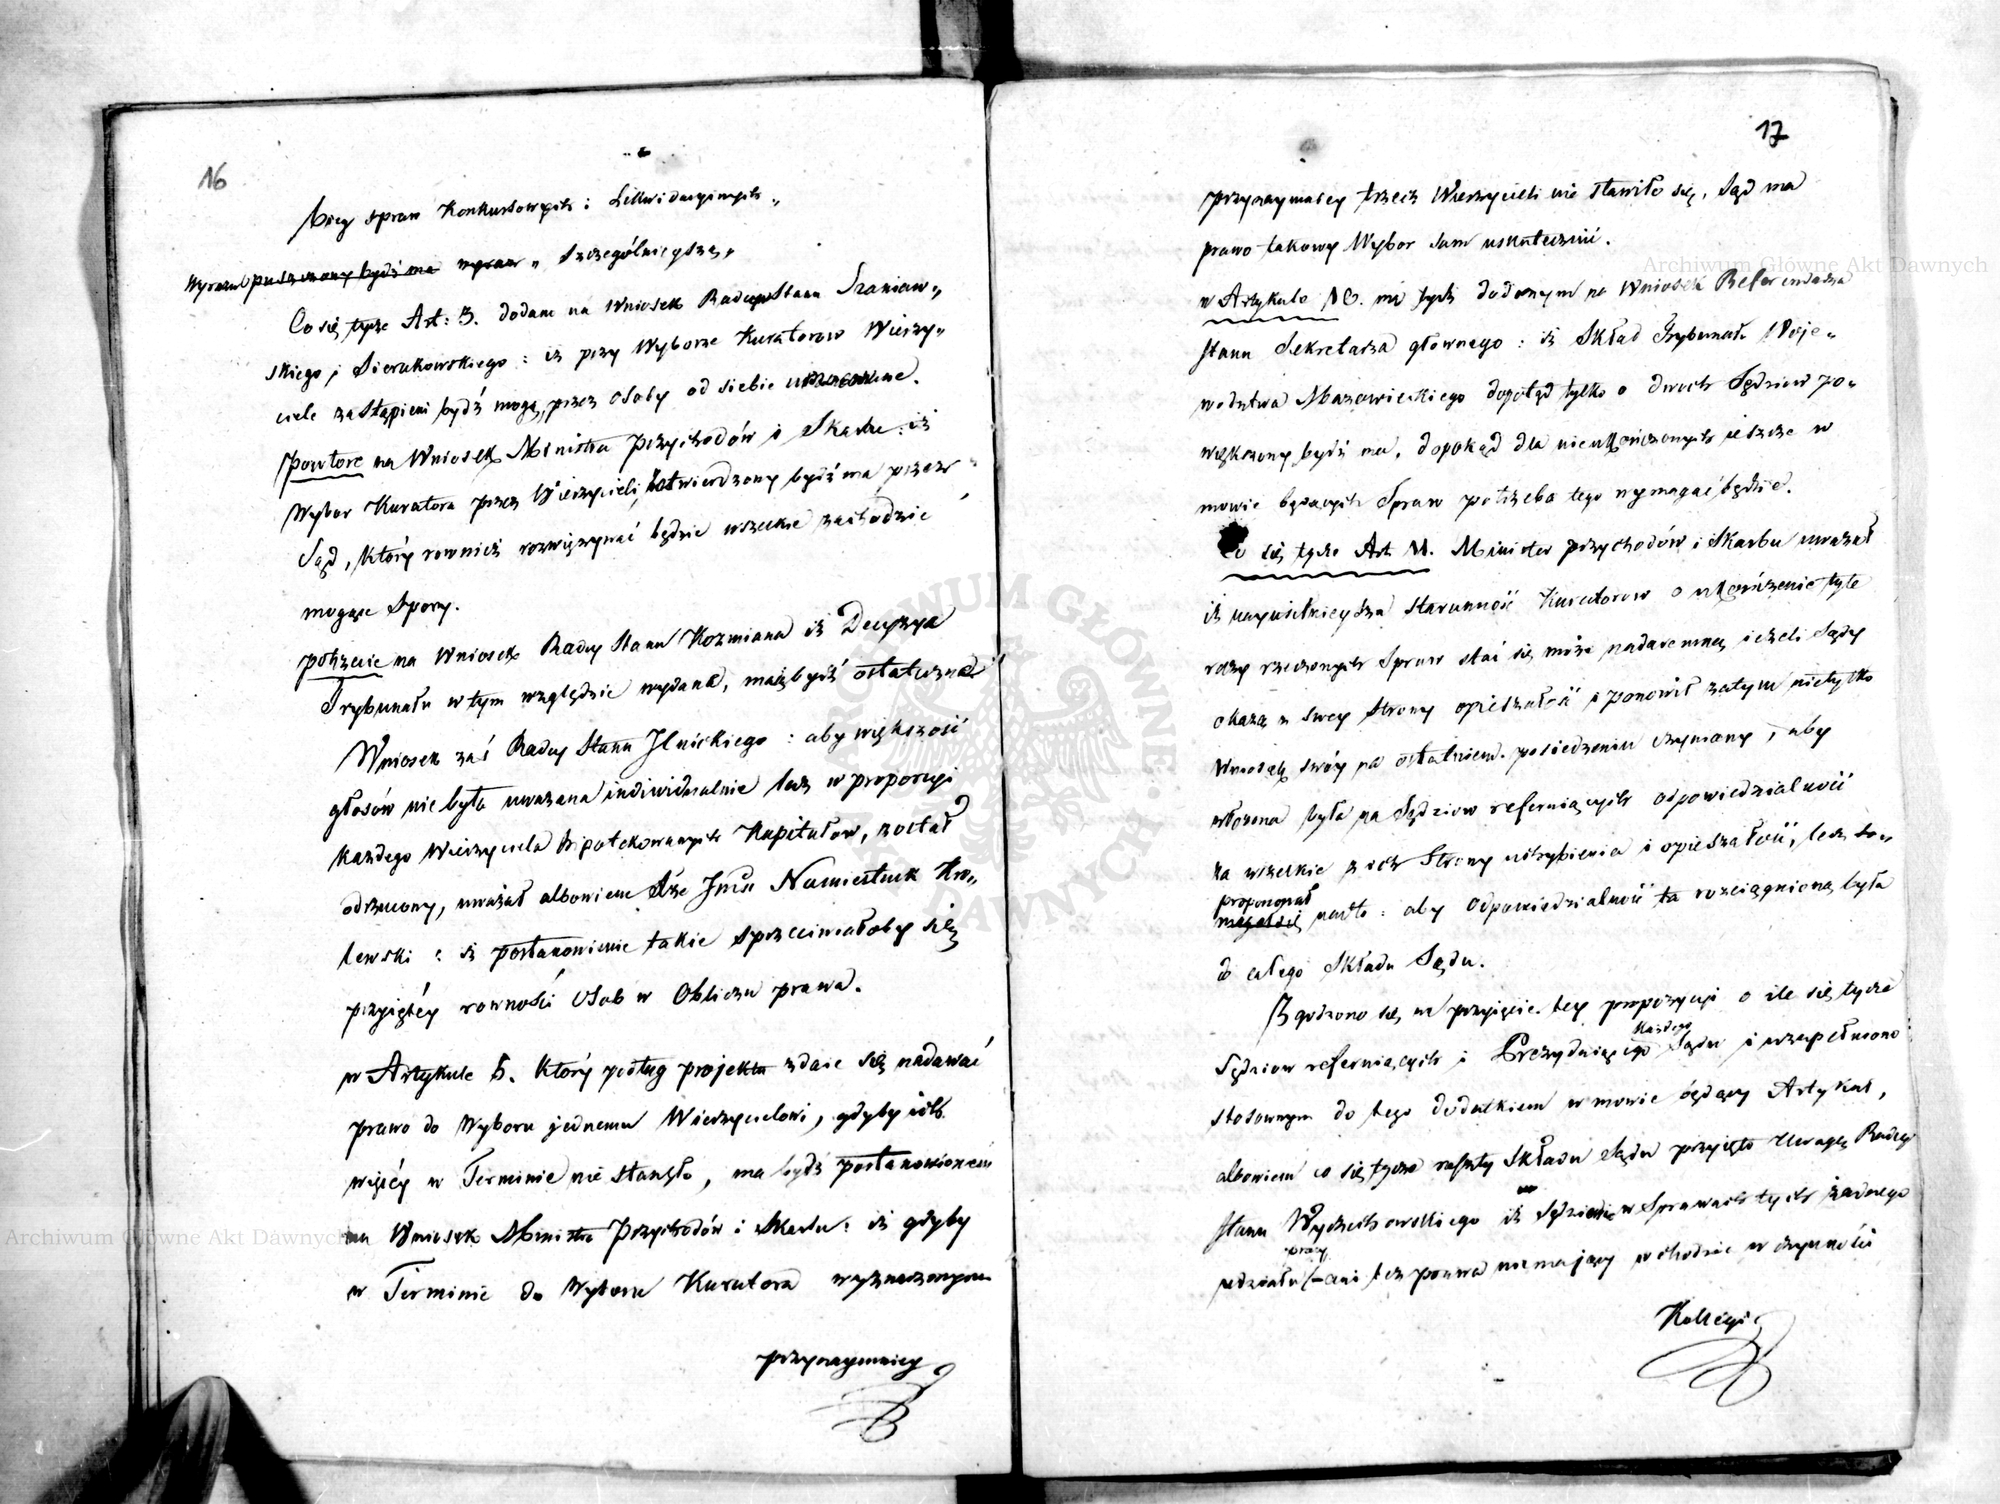 16
biey spraw Konkursowych i Likwidacyinych „
Wyraz puszczony bydź ma wyraz „ szczególnieysza „
Co się tycze Art: 3. dodane na Wniosek Radcy Stanu Szaniaw„
skiego i Sierakowskiego : iż przy Wyborze Kuratorow Wierzy„
ciele zastąpieni bydź mogą, przez osoby od siebie umocowane.
powtore na Wniosek Ministra Przychodów i Skarbu : iż
Wybor Kuratora przez Wierzycieli, zatwierdzony bydź ma przez
Sąd, który rownież rozwięzywać będzie wszelkie zachodzić
mogące Spory.
potrzecie na Wniosek Radcy Stanu Kozmiana iż Decyzya
Trybunału w tym względzie wydana, ma bydź ostateczna
Wniosek zaś Radcy Stanu Ilnickiego : aby większość
głosów nie była uważana indiwidualnie lecz w proporcyi
każdego Wierzyciela hipotekowanych Kapitałow, został
odrzucony, uważał albowiem Xże Jmć Namiestnik Kro„
lewski : iż postanowienie takie sprzeciwiałoby się
przyiętéy rowności Osob w Obliczu prawa.
w Artykule 5. który podług projektu zdaie się nadawać
prawo do Wyboru jednemu Wierzycielowi, gdyby ich
więcéy w Terminie nie stanęło, ma bydź postanowionem
na Wniosek Ministra Przychodów i Skarbu : iż gdyby
w Terminie do Wyboru Kuratora wyznaczonym
przynaymniey
17
przynaymniey trzech Wierzycieli nie stawiło się, Sąd ma
prawo takowy Wybor sam uskutecznić.
w Artykule 10. ma bydź dodanym na Wniosek Referendarza
Stanu Sekretarza głównego : iż Skład Trybunału Woje„
wodztwa Mazowieckiego dopotąd tylko o dwoch Sędziow po„
większony bydź ma, dopokąd dla nieukończonych ieszcze w
mowie będących Spraw potrzeba tego wymagać będzie.
Co się tycze Art. 11. Minister przychodów i Skarbu uważał
iż nayusilnieysza staranność Kuratorow o ukończenie tyle
rzeczonych Spraw stać się może nadaremną ieżeli Sądy
okażą z swey Strony opieszałość i ponowił zatym nietylko
Wniosek swóy na ostatniem posiedzeniu czyniony, aby
włożona była na Sędziow referuiących odpowiedzialność
za wszelkie z ich Strony uchybienia i opieszałość, lecz
proponował
nadto : aby Odpowiedzialność ta rozciągnioną była
do całego Składu Sądu.
Zgodzono się na przyięcie tey propozycyi o ile się tycze
Każdego
Sędziow referuiących i Prezyduiącego Sądu i uzupełniono
stosownym do tego dodatkiem w mowie będący Artykuł,
albowiem co się tycze reszty Składu Sądu przyięto Uwagę Radcy
Stanu Wyczechowskiego iż Sędziowie w Sprawach tych żadnego
pracy
udziału – ani też prawa niemaiący wchodzić w czynności
Kollegi
Archiwum Główne Akt Dawnych
Archiwum Główne Akt Dawnych
ARCHIWUM GŁÓWNE AKT DAWNYCH